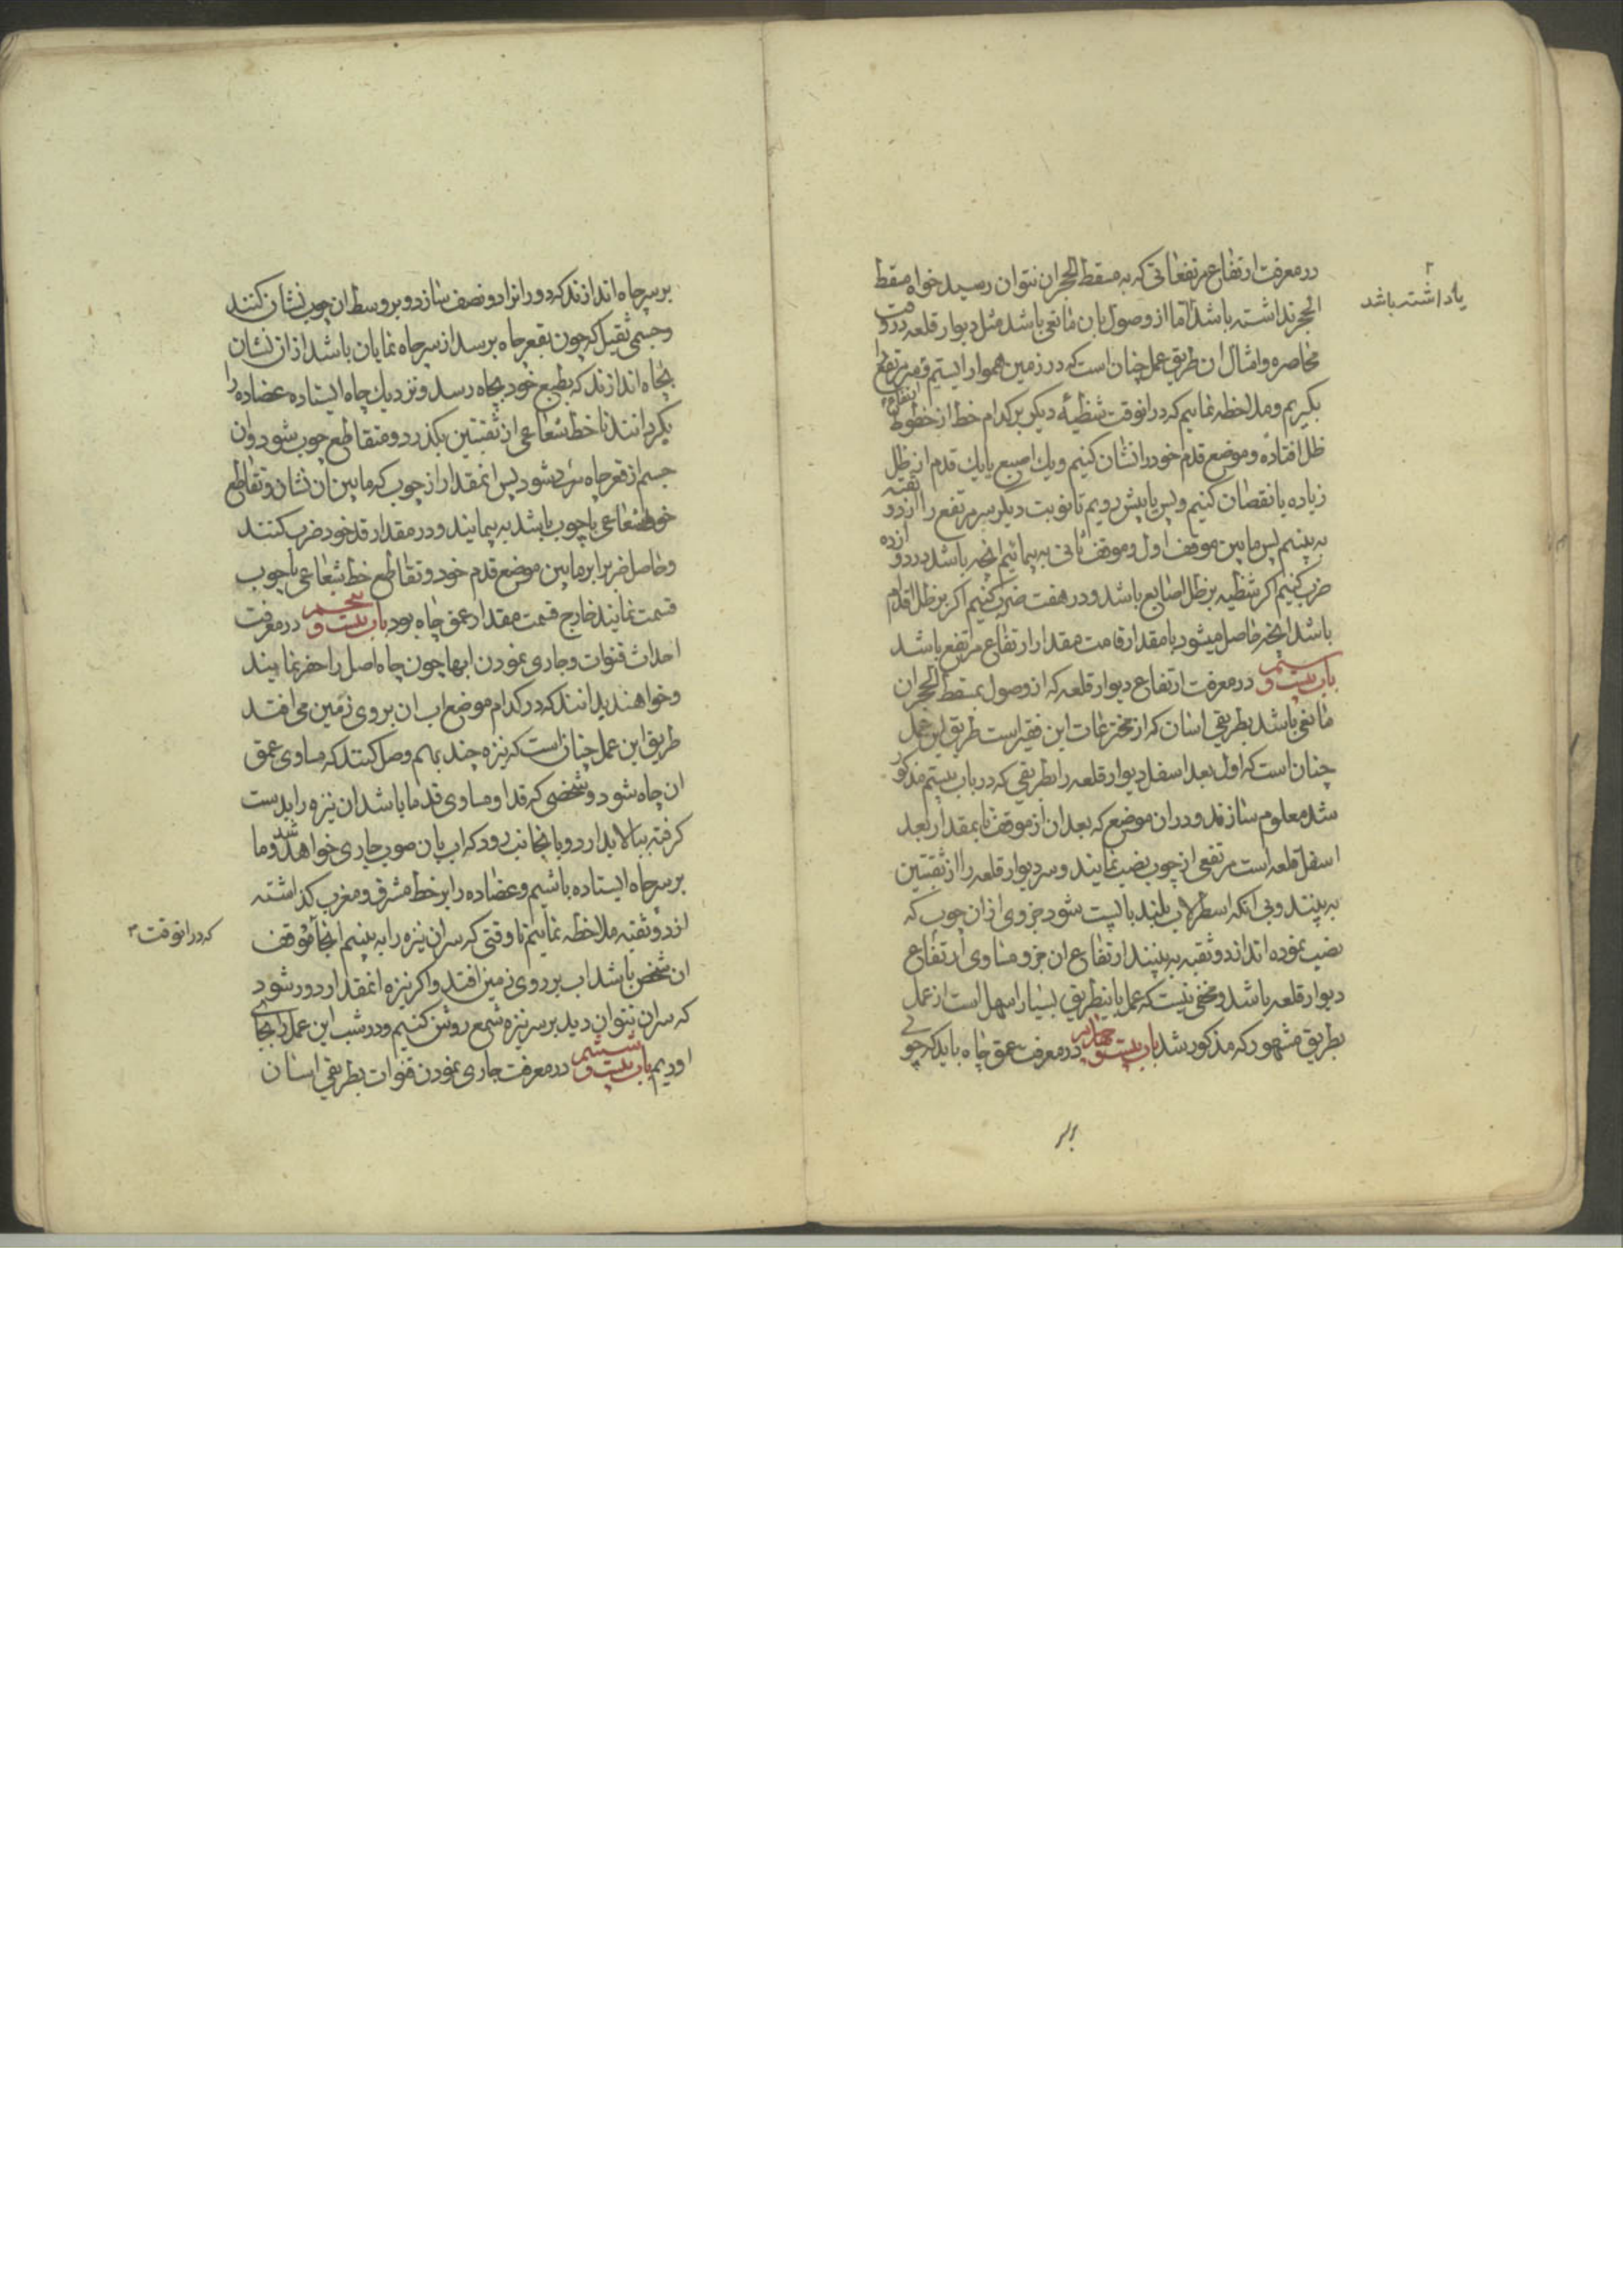 در معرفت ارتفاع مرتفعاتی که به مسقط الحجر ان نتوان رسید خواه مسقط
الحجر نداشته باشد
یا داشته باشد
اما از وصول بان مانعی باشد مثل دیوار قلعه در وقت
محاصره و امثال ان طریق عمل چنان است که در زمین هموار ایستیم و سر مرتفع را
بگیریم و ملاحظه نماییم که در انوقت شظیهٔ دیگر بر کدام خط از خطوط
ظل افتاده و موضع قدم خود را نشان کنیم و یك اصبع یا یك قدم از ظل
زیاده یا نقصان کنیم و پس یا پیش رویم تا نوبت دیگر سر مرتفع را از دو ثقبه
به بینیم پس ما بین موقف اول و موقف ثانی به پیمائیم انچه باشد در دوازده
ضرب کنیم اکر شظیه بر ظل اصابع باشد و در هفت ضرب کنیم اکر بر ظل اقدام
باشد انچه حاصل میشود با مقدار قامت مقدار ارتفاع مرتفع باشد
باب بیست و سیم در معرفت ارتفاع دیوار قلعه که از وصول بمسقط الحجر ان
مانعی باشد بطریقی اسان که از مخترعات این فقیر است طریق این عمل
چنان است که اول بعد اسفل دیوار قلعه را بطریقی که در باب بیستم مذکور
شد معلوم سازند و در ان موضع که بعد ان از موقف ما بمقدار بعد
اسفل قلعه است مرتفعی از چوب نصب نمایند و سر دیوار قلعه را از ثقبتین
به بینند و بی انکه اسطرلاب بلند یا پست شود جزوی از ان چوب که
نصب نموده اند از دو ثقبه به بینند ارتفاع ان جزو مساوی ارتفاع
دیوار قلعه باشد و مخفی نیست که عمل باینطریق بسیار اسهل است از عمل
بطریق مشهور که مذکور شد باب بیست و چهارم در معرفت عمق چاه باید که چوبی
بر
بر سر چاه اندازند که دور انرا دو نصف سازد و بر وسط ان چوب نشان کنند
و جسمی ثقیل که چون بقعر چاه برسد از سر چاه نمایان باشد از ان نشان
بچاه اندازند که بطبع خود بچاه رسد و نزدیك چاه ایستاده عضاده را
بگردانند تا خط شعاعی از ثقبتین بگذرد و متقاطع چوب شود و ان
جسم از قعر چاه مرئی شود پس انمقدار از چوب که ما بین ان نشان و تقاطع
خط شعاعی با چوب باشد به پیمایند و در مقدار قد خود ضرب کنند
و حاصل ضرب را بر ما بین موضع قدم خود و تقاطع خط شعاعی با چوب
قسمت نمایند خارج قسمت مقدار عمق چاه بود باب بیست و پنجم در معرفت
احداث قنوات و جاری نمودن ابها چون چاه اصل را حفر نمایند
و خواهند بدانند که در کدام موضع اب ان بروی زمین می افتد
طریق این عمل چنان است که نیزه چند بهم وصل کنند که مساوی عمق
ان چاه شود و شخصی که قد او مساوی قد ما باشد ان نیزه را بدست
گرفته ببالا بدارد و بانجانب رود که اب بان صوب جاری خواهد شد و ما
بر سر چاه ایستاده باشیم و عضاده را بر خط مشرق و مغرب کذاشته
از دو ثقبه ملاحظه نماییم تا وقتی که سر ان نیزه را به بینیم انجا
که در انوقت
موقف
ان شخص باشد اب بر روی زمین افتد و اکر نیزه انمقدار دور شود
که سر ان نتوان دید بر سر نیزه شمع روشن کنیم و در شب این عمل را بجای
اوریم باب بیست و ششم در معرفت جاری نمودن قنوات بطریقی اسان